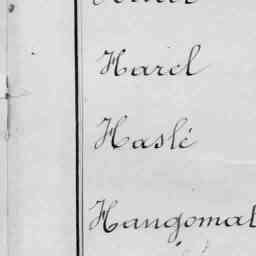 Harel
Haslé
Hangomat